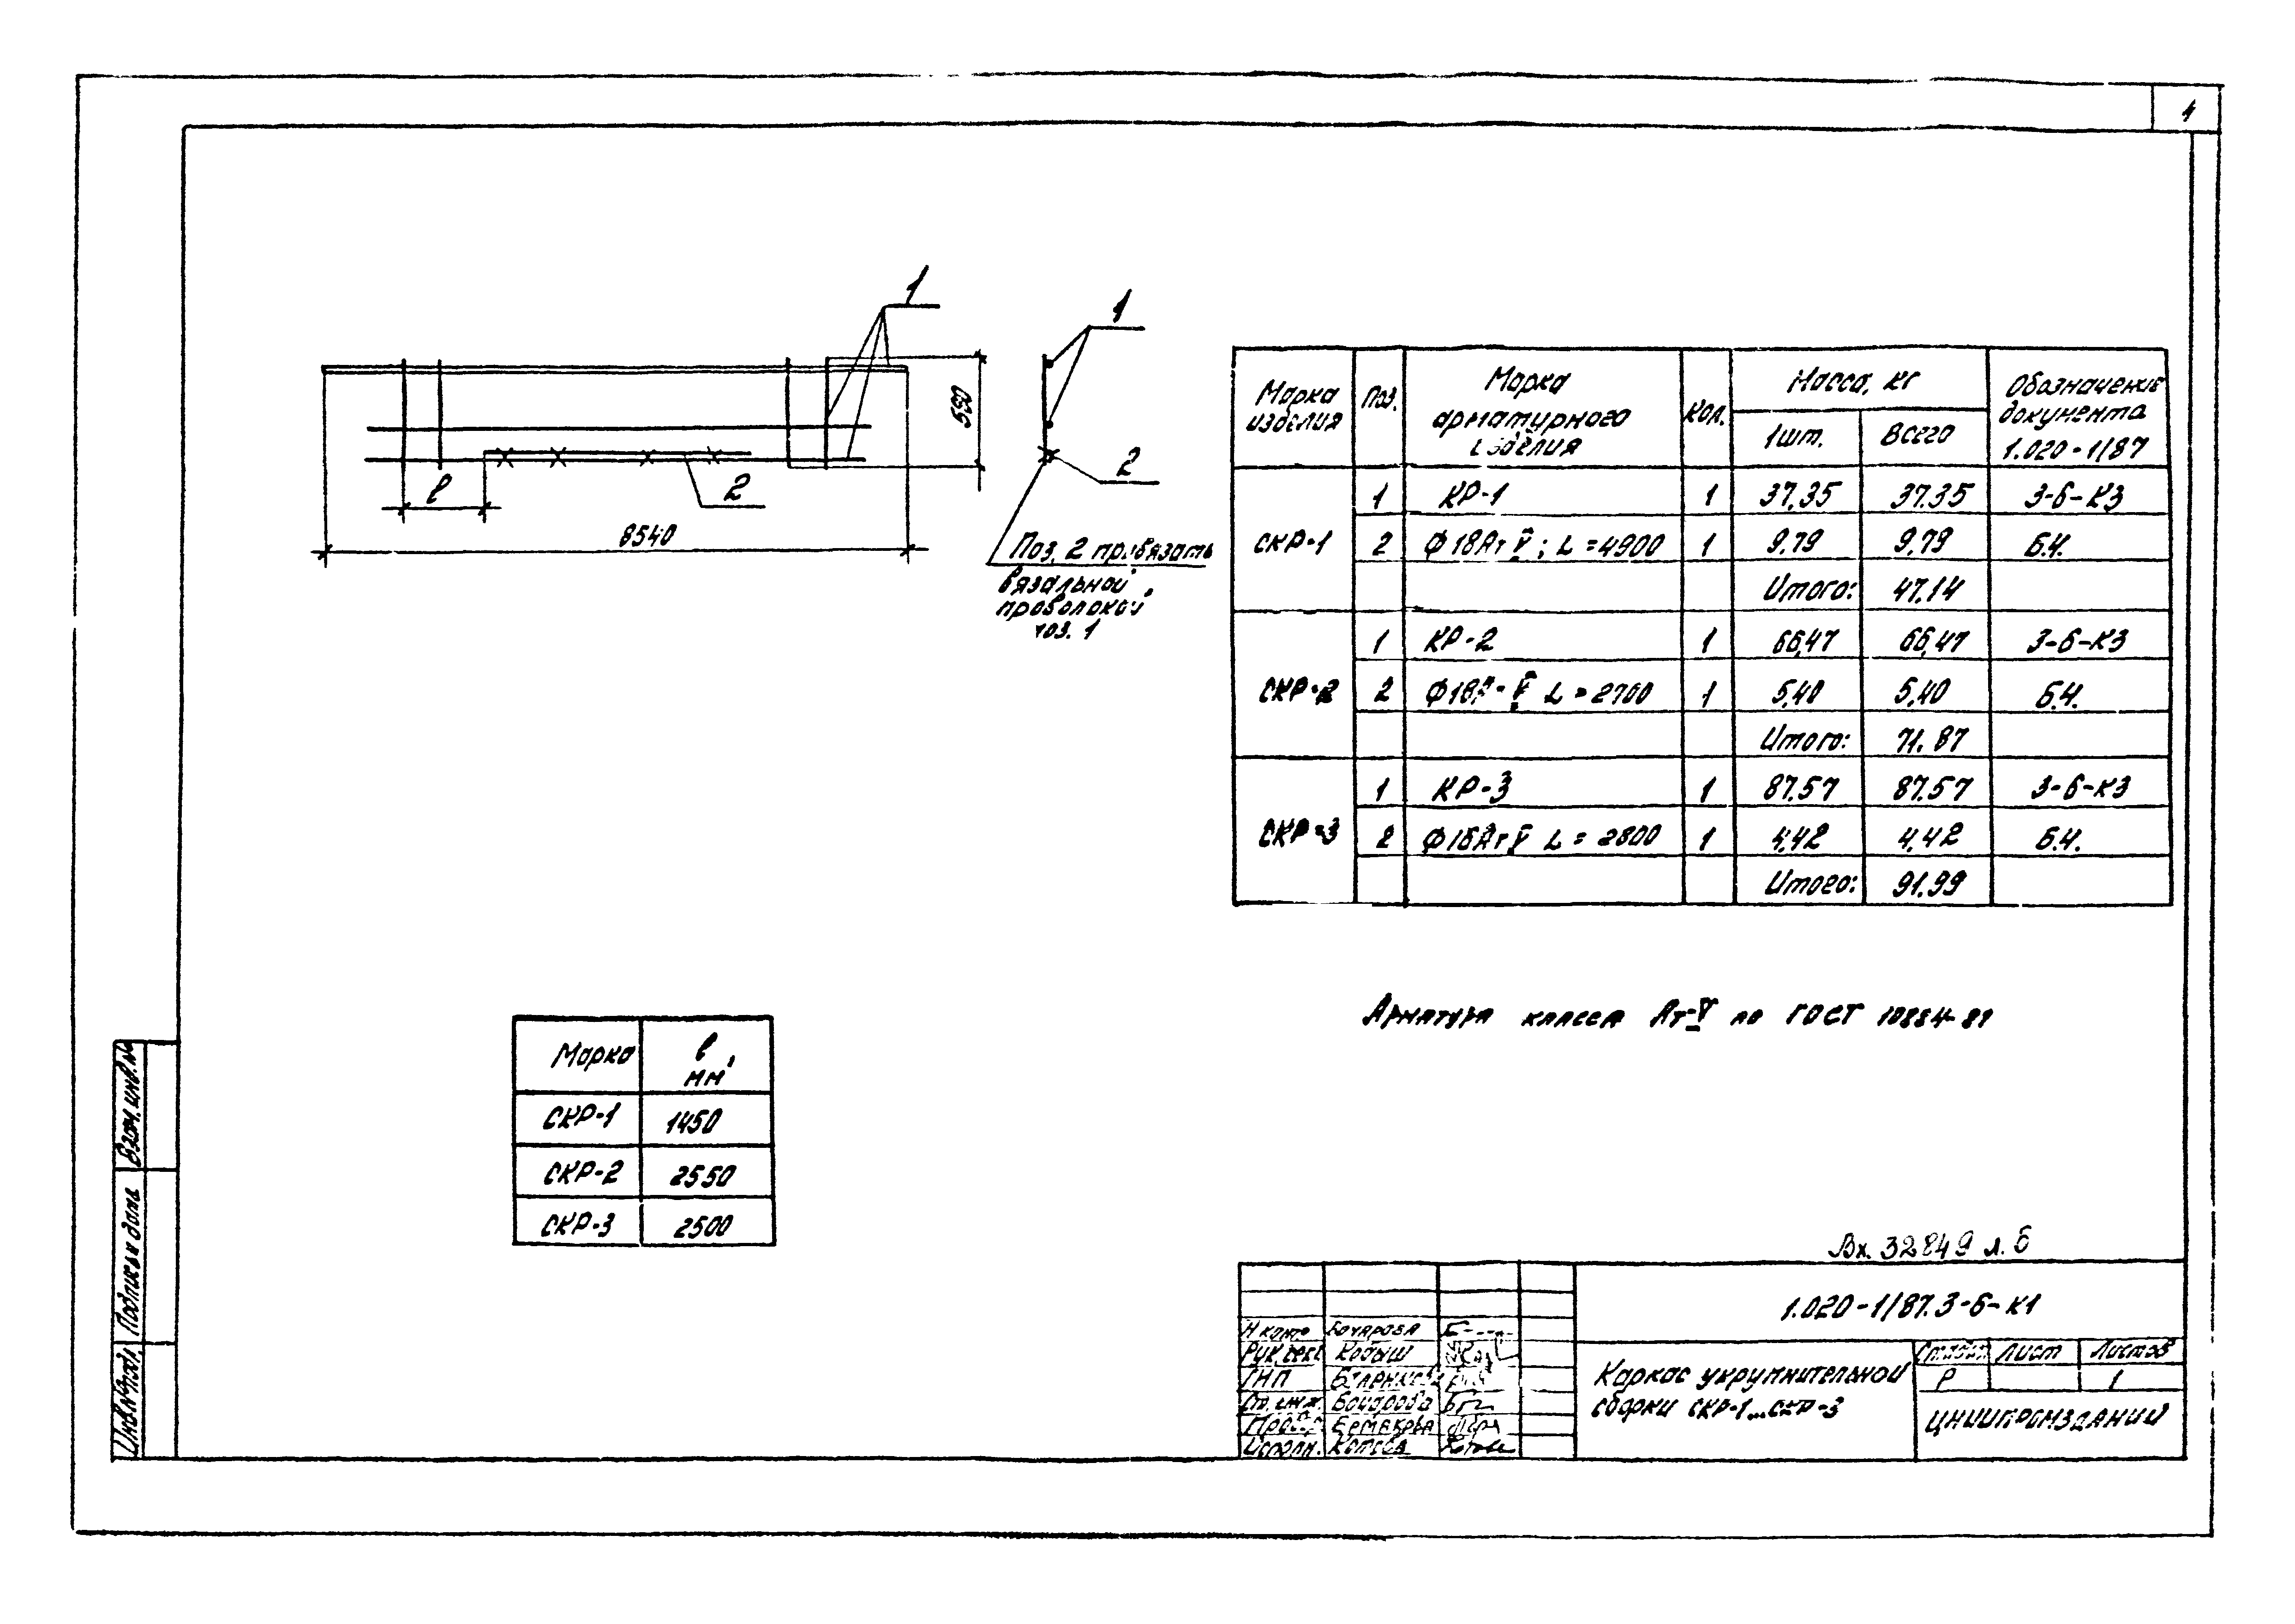 4
1
1
580
2
2
l
8540
Поз. 2 привязать
вязальной
проволокой
поз. 1
Марка изделия | Поз. | Марка арматурного изделия | Кол. | Масса, кг | Обозначение документа 1.020-1/87
1шт. | Всего
СКР-1
1 | КР-1 | 1 | 37,35 | 37,35 | 3-6-К3
2 | Ф18АтV; L=4900 | 1 | 9,79 | 9,79 | Б.Ч.
Итого: | 47,14
СКР-2
1 | КР-2 | 1 | 66,47 | 66,47 | 3-6-К3
2 | Ф18Ат-V L=2700 | 1 | 5,40 | 5,40 | Б.Ч.
Итого: | 71.87
СКР-3
1 | КР-3 | 1 | 87.57 | 87.57 | 3-6-К3
2 | Ф16АтV L=2800 | 1 | 4,42 | 4,42 | Б.Ч.
Итого: | 91.99
Арматура класса Ат-V по ГОСТ 10884-81
Марка | l, мм
СКР-1 | 1450
СКР-2 | 2550
СКР-3 | 2500
Взам. инв. №
Подпись и дата
Инв. № подл.
Вх. 32849 л. 6
1.020-1/87.3-6-К1
Н. контр. Бочарова
Рук. сект. Кодыш
ГИП
Ст. инж. Бочарова
Пров. Ермакова
Исполн. Котова
Каркас укрупнительной
сборки СКР-1...СКР-3
Стадия | Лист | Листов
Р | 1
ЦНИИПРОМЗДАНИЙ